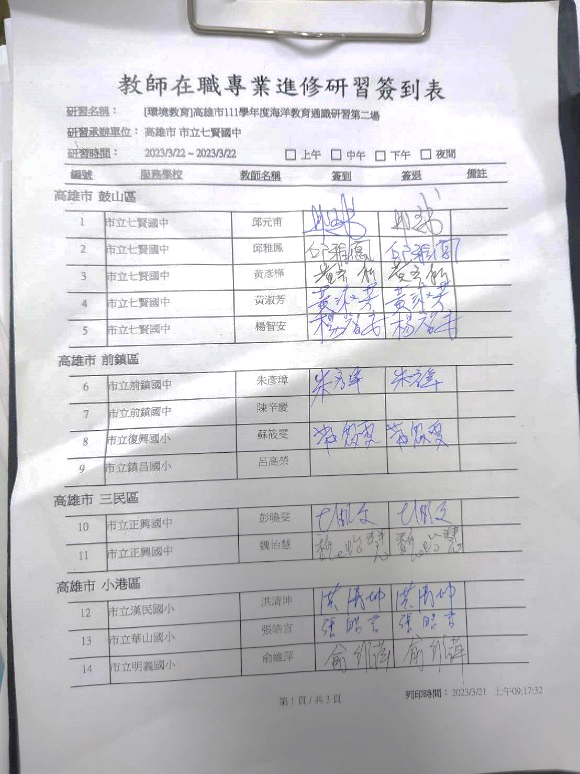 教師在職專業進修研習簽到表
研習名稱： [環境教育]高雄市111學年度海洋教育通識研習第二場
研習承辦單位： 高雄市 市立七賢國中
研習時間： 2023/3/22 ~ 2023/3/22 □ 上午 □ 中午 □ 下午 □ 夜間
編號 服務學校 教師名稱 簽到 簽退 備註
高雄市 鼓山區
1 市立七賢國中 邱元甫
2 市立七賢國中 邱雅鳳 邱雅鳳 邱雅鳳
3 市立七賢國中 黃彥樺
4 市立七賢國中 黃淑芳 黃淑芳 黃淑芳
5 市立七賢國中 楊智安 楊智安 楊智安
高雄市 前鎮區
6 市立前鎮國中 朱彥璋 朱彥璋 朱彥璋
7 市立前鎮國中 陳辛慶
8 市立復興國小 蘇筱雯
9 市立鎮昌國小 呂高榮
高雄市 三民區
10 市立正興國中 彭曉雯
11 市立正興國中 魏治慧 魏治慧 魏治慧
高雄市 小港區
12 市立漢民國小 洪清坤 洪清坤 洪清坤
13 市立華山國小 張皓言 張皓言 張皓言
14 市立明義國小 俞維萍 俞維萍 俞維萍
第 1 頁 / 共 3 頁
列印時間： 2023/3/21 上午09:17:32